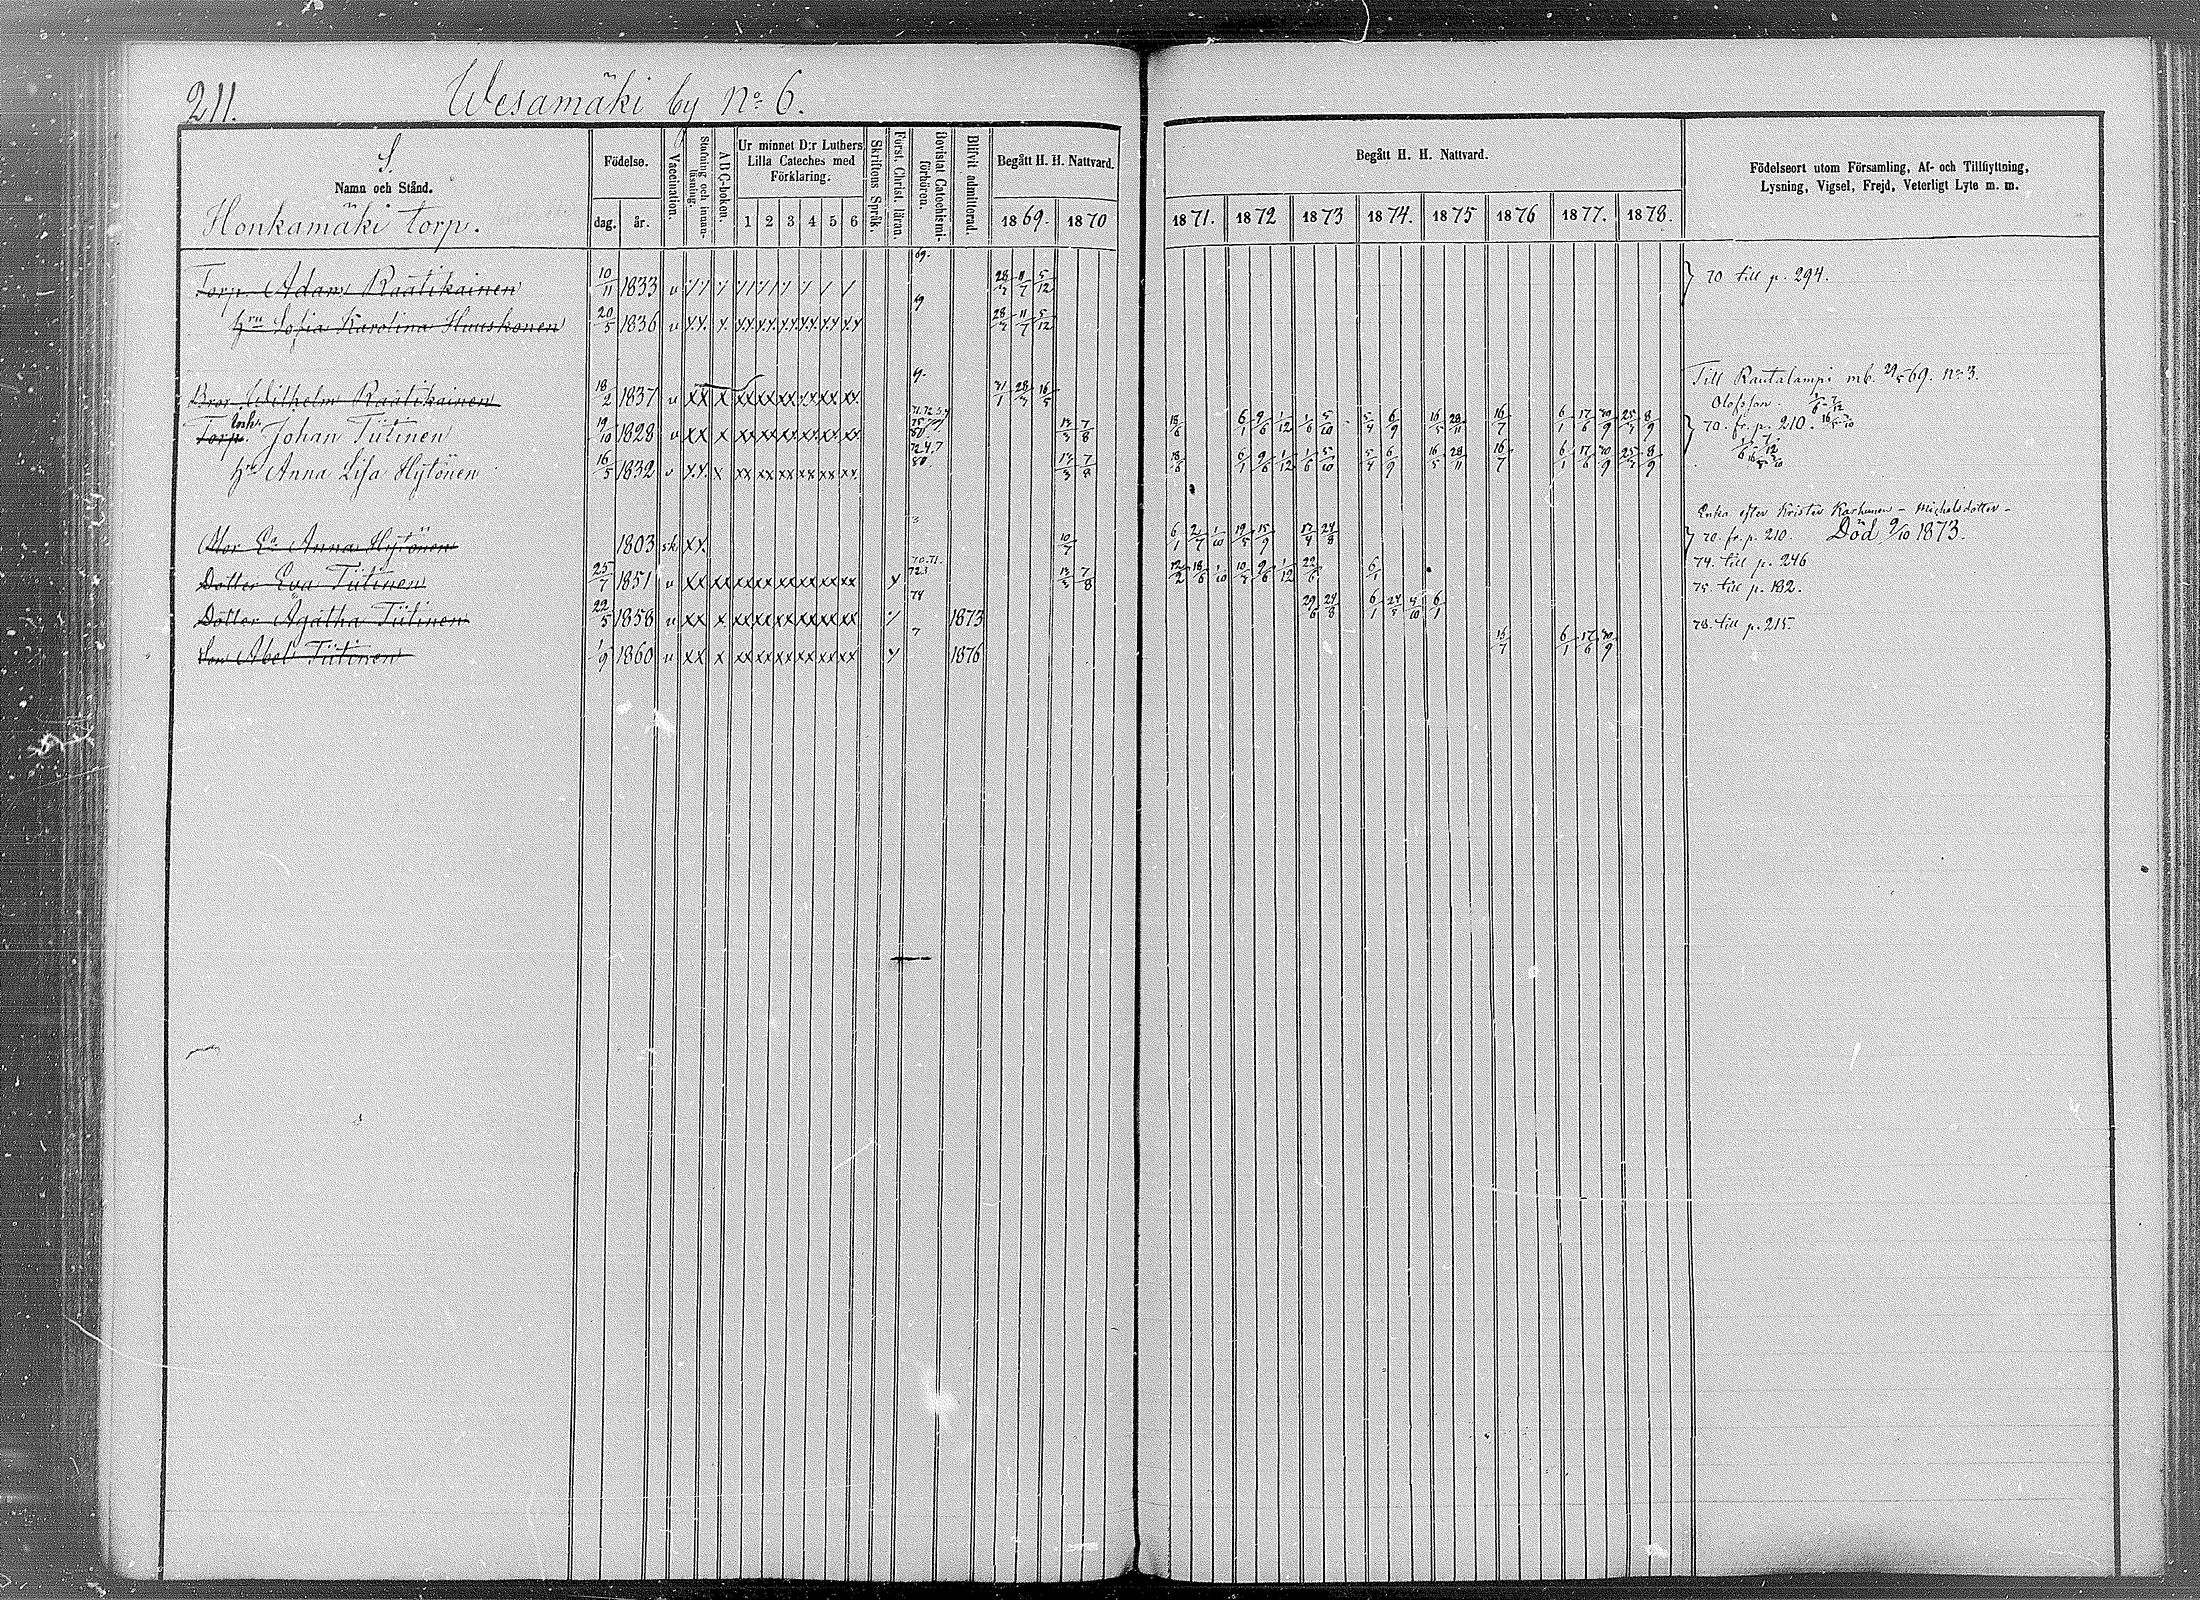 211.
Wesamäki by No 6.
S.
Namn och Stånd.
Honkamäki torp.
Födelse.
dag. år.
Vaccination.
Stafning och innanläsning.
A B C-boken.
Ur minnet D:r Luthers
Lilla Cateches med
Förklaring.
1 2 3 4 5 6
Skriftens Språk.
Först. Christ. läran.
Bevistat Catechismi-förhören.
Blifvit admitterad.
Begått H. H. Nattvard.
1869. 1870
Begått H. H. Nattvard.
1871. 1872 1873 1874. 1875 1876 1877. 1878.
Födelseort utom Församling, Af- och Tillflyttning,
Lysning, Vigsel, Frejd, Veterligt Lyte m. m.
Torp. Adam Räätikainen 10/11 1833 v 69. 28/3 11/7 5/12 70 till p. 294.
Hru Sofia Karolina Huuskonen 20/5 1836 v 28/3 11/7 5/12
Bror Wilhelm Räätikainen 18/2 1837 v xx x xx xx xx xx xx xx 31/1 28/3 16/5 Till Rautalampi mb. 69. No 3.
Olofsson.
Torp. Inh. Johan Tiitinen 19/10 1828 v xx x xx xx xx xx xx xx 13/3 7/8 18/6 6/1 9/6 1/12 1/6 5/10 5/4 6/9 16/5 28/11 16/7 6/1 17/6 30/9 25/3 8/9 70. fr. p. 210.
Hru Anna Lisa Hytönen 16/5 1832 v x.x. x xx xx xx xx xx xx 13/3 7/8 18/6 6/1 9/6 1/12 1/6 5/10 5/4 6/9 16/5 28/11 16/7 6/1 17/6 30/9 25/3 8/9
Enka efter Krister Karhunen - Michelsdotter -
Mor Ea Anna Hytönen 1803 sk xx. 10/7 6/1 2/7 1/10 19/5 15/9 17/4 24/8 70. fr. p. 210. Död 9/10 1873.
Dotter Eva Tiitinen 25/7 1851 v xx xx xx xx xx xx xx xx x 70.71. 72.3 13/3 7/8 12/2 18/6 1/10 10/3 9/6 1/12 22/6 6/1 74. till p. 246
Dotter Agatha Tiitinen 22/5 1858 v xx x xx xx xx xx xx xx 74 1873 29/6 24/8 6/1 24/5 4/10 6/1 75. till p. 182.
Son Abel Tiitinen 1/9 1860 v xx x xx xx xx xx xx xx x 7 1876 16/7 6/1 17/6 30/9 78. till p. 215.